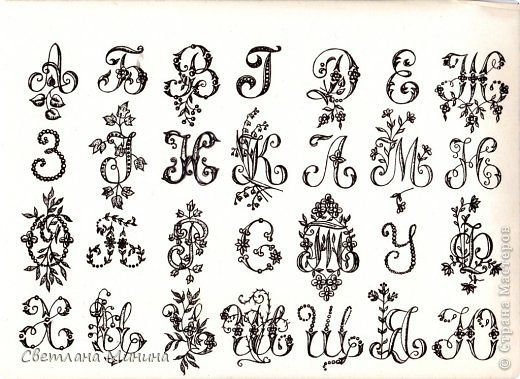 А Б В Г Д Е Ж
З І И К Л М Н
О П Р С Т У Ф
Х Ц Ч Ш Щ Я Ю
Светлана Минина
© Страна Мастеров